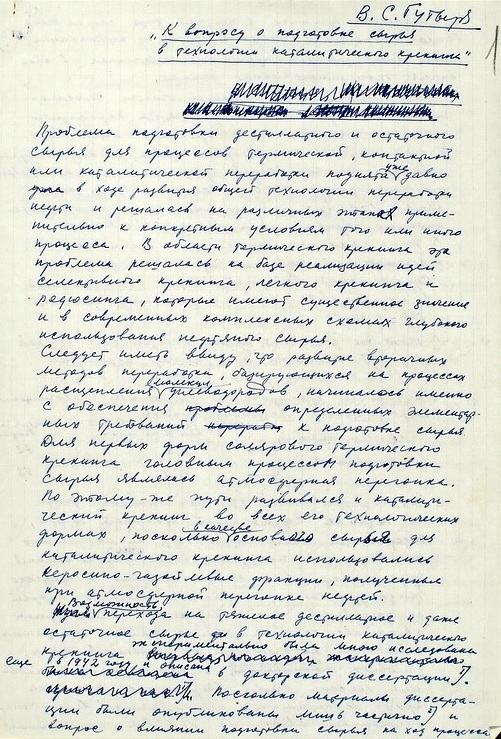 В. С. Гутыря
1
"К вопросу о подготовке сырья
в технологии каталитического крекинга"
Проблема подготовки дестиллатного и остаточного
сырья для процессов термической, контактной
или каталитической переработки поднята уже давно
в ходе развития общей технологии переработки
нефти и решалась на различных этапах приме-
нительно к конкретным условиям того или иного
процесса. В области термического крекинга эта
проблема решалась на базе реализации идей
селективного крекинга, легкого крекинга и
редюсинга, которые имеют существенное значение
и в современных комплексных схемах глубокого
использования нефтяного сырья.
Следует иметь ввиду, что развитие вторичных
методов переработки, базирующихся на процессах
расщепления молекул углеводородов, начиналось именно
с обеспечения проблемы определенных элементар-
ных требований переработки к подготовке сырья.
Для первых форм солярового термического
крекинга головным процессом подготовки
сырья являлась атмосферная перегонка.
По этому-же пути развивался и каталити-
ческий крекинг во всех его технологических
формах, поскольку в качестве основного сырья для
каталитического крекинга использовались
керосино-газойлевые фракции, полученные
при атмосферной перегонке нефтей.
Возможность перехода на тяжелое дестиллатное и даже
остаточное сырье в технологии каталитического
крекинга экспериментально была мною исследована
еще в 1942 году и описана в докторской диссертации.
Поскольку материалы диссерта-
ции были опубликованы лишь частично и
вопрос о влиянии подготовки сырья на ход процесса